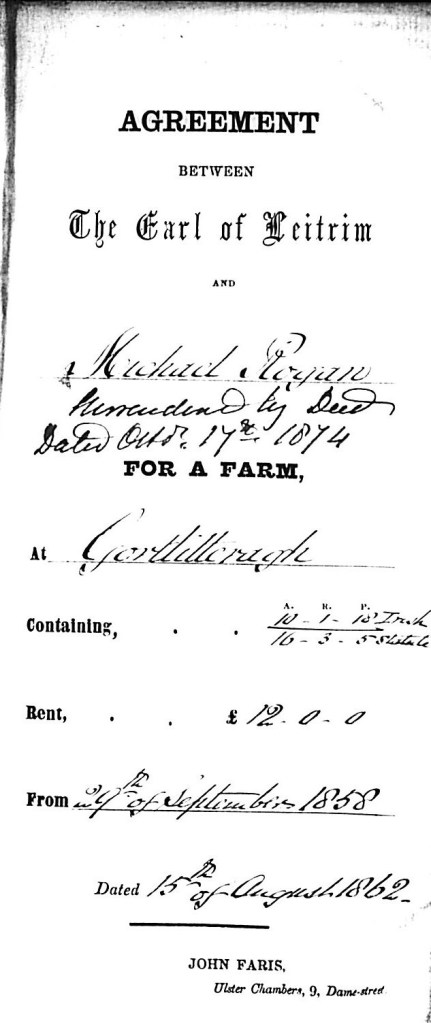 AGREEMENT
BETWEEN
The Earl of Leitrim
AND
Michael Rogan
Surrendered by Deed
Dated Octbr. 17th 1874
FOR A FARM,
At
A. R. P.
Containing, . . 10 - 1 - 18 Irish
16 - 3 - 5 Statute
Rent, . . £ 12-0-0
From 29th of September 1858
Dated 15th of August 1862-
JOHN FARIS,
Ulster Chambers, 9, Dame-street